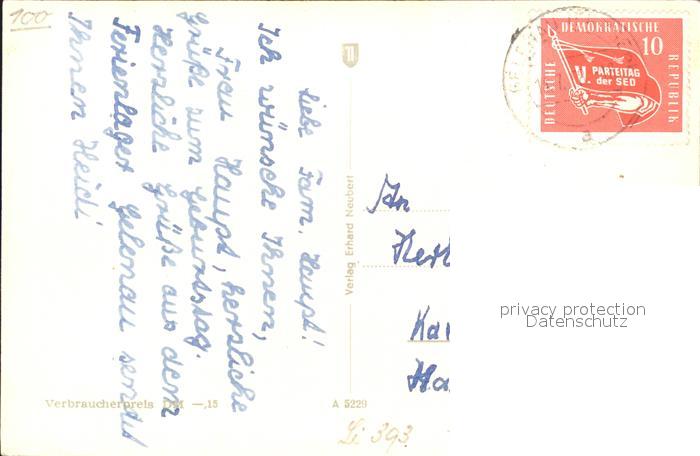 100
Liebe Fam. Haupt!
Ich wünsche Ihnen,
Frau Haupt, herzliche
Grüße zum Geburtstag.
Herzliche Grüße aus dem
Ferienlager Gelenau sendet
Ihnen Heidi
Verbraucherpreis DM —,15
A 5229
Verlag Erhard Neubert
DEUTSCHE DEMOKRATISCHE REPUBLIK
10
V. PARTEITAG
der SED
GELENAU
a
An
privacy protection
Datenschutz
Li 393